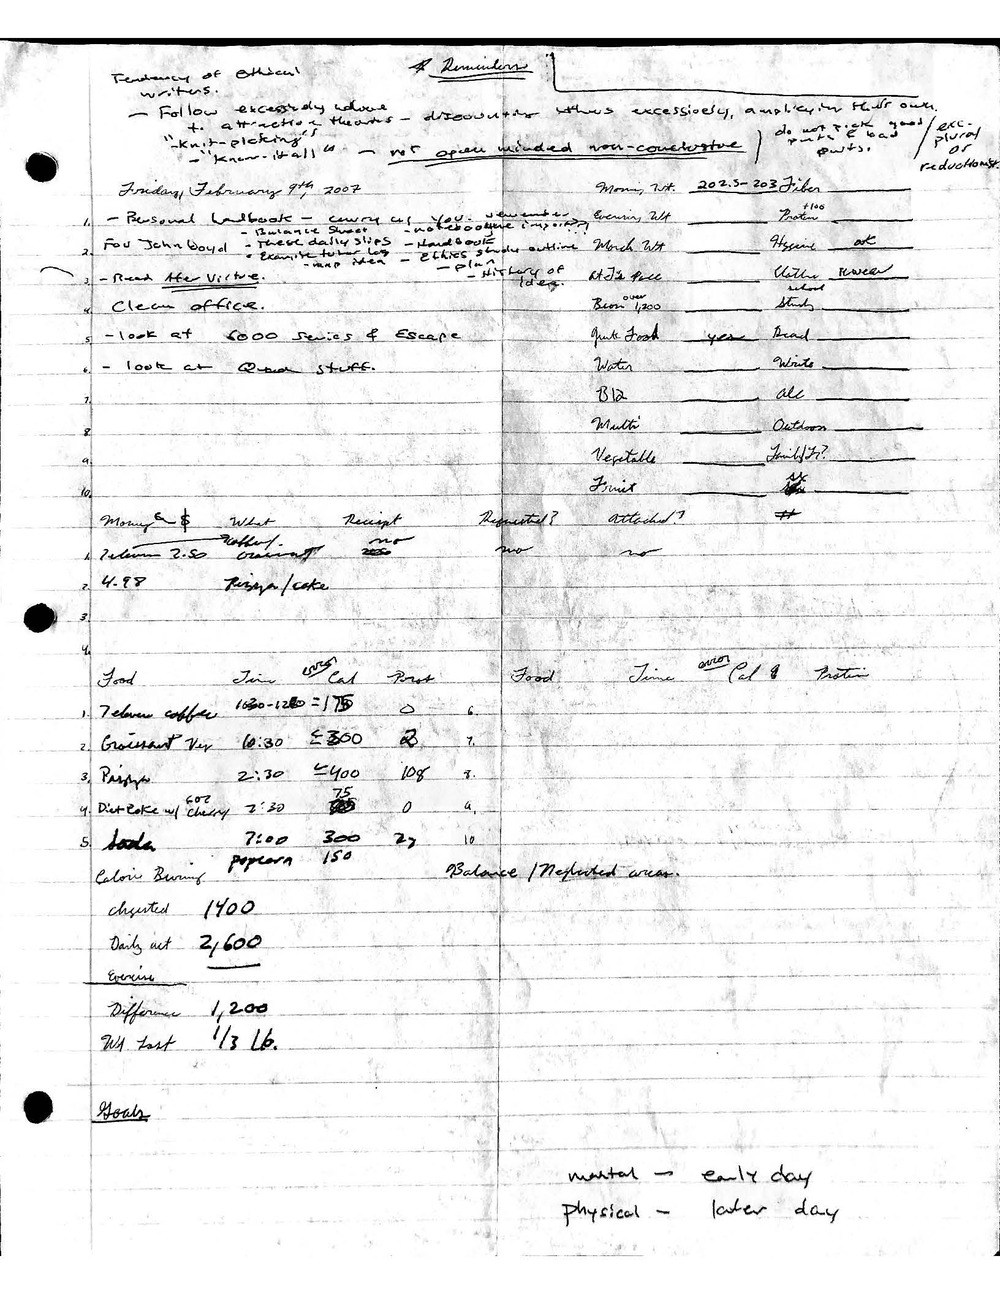 * Reminders
Tendency of Ethical
writers.
- Follow excessively
to attraction theories - discounting others excessively, amplifying their own.
"knit-picking"
- "know-it-all" - not open minded non-conclusive
do not pick good
parts & bad
parts.
exc-
plural
or
reductionist.
Friday, February 9th, 2007
Morning Wt. 202.5-203 Fiber
1. - Personal handbook - carry w/ you. remember
- Balance Sheet - notebook
Evening Wt Protein +100
2. For John Boyd - These daily slips - Handbook
- Examine tutor log - Ethics study outline
- map idea - plan
- History of
idea.
March Wt Hygiene ok
3. - Read After Virtue.
Clothes rewear
4. Clean office.
school
over 1,200 Study
5. - look at 6000 series & Escape
Junk Food yes Read
6. - look at Quad stuff.
Water Write
7. B12 alc
8. Multi Outdoor
9. Vegetable
10. Fruit
Money & $ What Receipt Requested? Attached? #
1. 7eleven 2.50 coffee/ croissant no no no
2. 4.98 Pizza/coke
3.
4.
Food Time error Cal Prot Food Time error Cal & Protein
1. 7eleven coffee = 175 0 6.
2. Croissant 10:30 ≤300 2 7.
3. Pizza 2:30 ≤400 10g 8.
4. Diet Coke w/ 6oz cherry 2:30 75 0 9.
5. Soda 7:00 300 2g 10
popcorn 150
Calorie Burning
Balance / Neglected areas.
digested 1400
Daily act 2,600
Exercise
Difference 1,200
Wt Lost 1/3 lb.
Goals
mental - early day
physical - later day